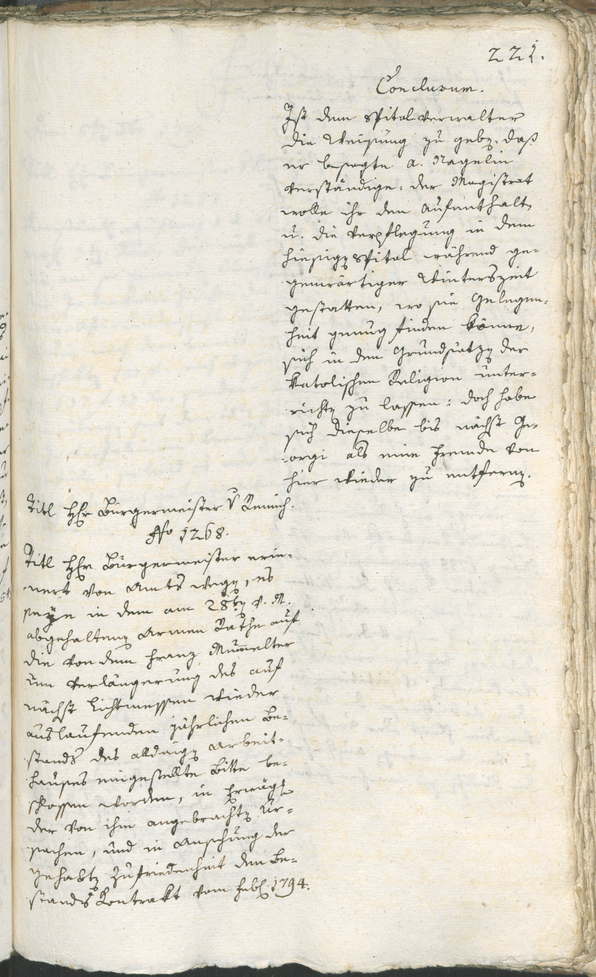 221.
Conclusum.
Ist dem Spitalverwalter
die Weisung zu geben, daß
er besagte A. Nagelin
verständige: der Magistrat
wolle ihr den Aufenthalt
u. die Verpflegung in dem
hiesigen Spital während ge-
genwärtiger Winterszeit
gestatten, wo sie Gelegen-
heit genug finden könne,
sich in den Grundsätzen der
Katolischen Religion unter-
richten zu lassen: doch habe
sich dieselbe bis nächst Ge-
orgi als eine Fremde von
hier wieder zu entfernen.
Titl Hr Bürgermeister v
No 1268.
Titl Hr Bürgermeister erin-
nert von Amts wegen, es
seye in dem am 28ten v. M.
abgehaltenen Armen Rathe auf
die von dem Franz Mumelter
um Verlängerung des auf
nächst Lichtmessen wieder
auslaufenden jährlichen Be-
stands des alldaigen Arbeit-
hauses eingestellte Bitte be-
schlossen worden, in Erwägung
der von ihm angebrachten Ur-
sachen, und in Ansehung der
gehabten Zufriedenheit den Be-
stands Kontrakt vom Febr: 1794.